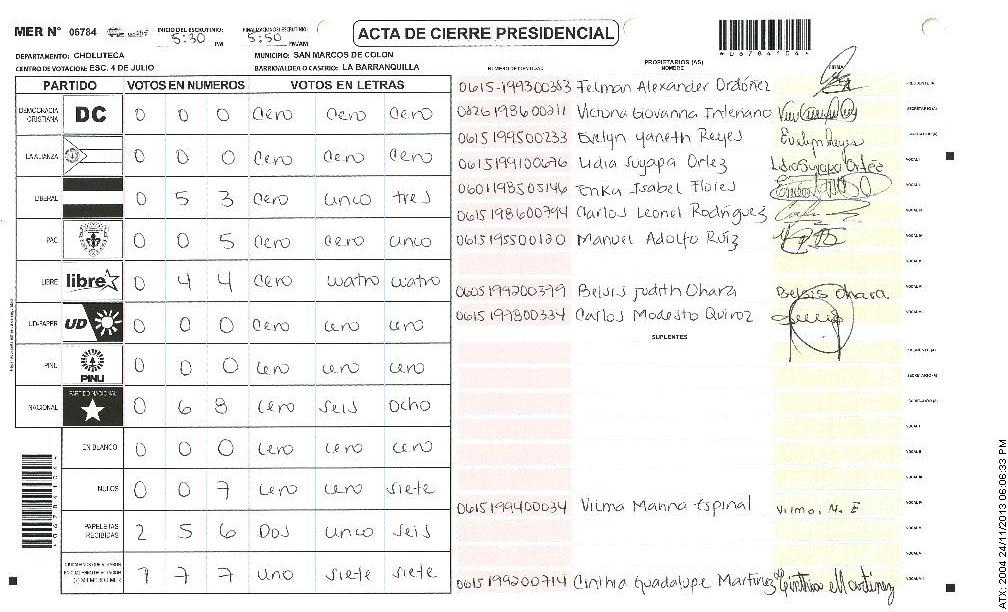 MER N° 06784
INICIO DEL ESCRUTINIO: 5:30 PM
FINALIZACION DEL ESCRUTINIO: 5:50 PM/AM
ACTA DE CIERRE PRESIDENCIAL
DEPARTAMENTO: CHOLUTECA
MUNICIPIO: SAN MARCOS DE COLON
CENTRO DE VOTACION: ESC. 4 DE JULIO
BARRIO/ALDEA O CASERIO: LA BARRANQUILLA
PARTIDO VOTOS EN NUMEROS VOTOS EN LETRAS
DEMOCRACIA CRISTIANA DC 0 0 0 Cero Cero Cero
LA ALIANZA 0 0 0 Cero Cero Cero
LIBERAL 0 5 3 Cero cinco tres
PAC 0 0 5 Cero Cero cinco
LIBRE libre 0 4 4 Cero cuatro cuatro
UD-FAPER UD 0 0 0 Cero cero cero
PINU PINU 0 0 0 cero cero cero
NACIONAL PARTIDO NACIONAL 0 6 8 cero seis ocho
EN BLANCO 0 0 0 cero cero cero
NULOS 0 0 7 cero cero siete
PAPELETAS RECIBIDAS 2 5 6 Dos cinco seis
1 7 7 uno siete siete
NUMERO DE IDENTIDAD
PROPIETARIOS (AS)
NOMBRE
FIRMA
0615-199300383 Felman Alexander Ordoñez
0826198600211 Victoria Giovanna Interiano
0615199500233 Evelyn Yaneth Reyes Evelyn Reyes
0615199100676 Lidia Suyapa Ortez Lidia Suyapa Ortéz
0601198505146 Erika Isabel Flores
0615198600794 Carlos Leonel Rodriguez
0615195500120 Manuel Adolfo Ruiz
0605199200379 Belsis Judith Ohara Belsis Ohara
0615197800334 Carlos Modesto Quiroz
SUPLENTES
0615199400034 Vilma Marina Espinal Vilma. M. E
0615199200714 Cinthia Guadalupe Martinez Cinthia Martinez
ATX 2004 24/11/2013 06:06:33 PM